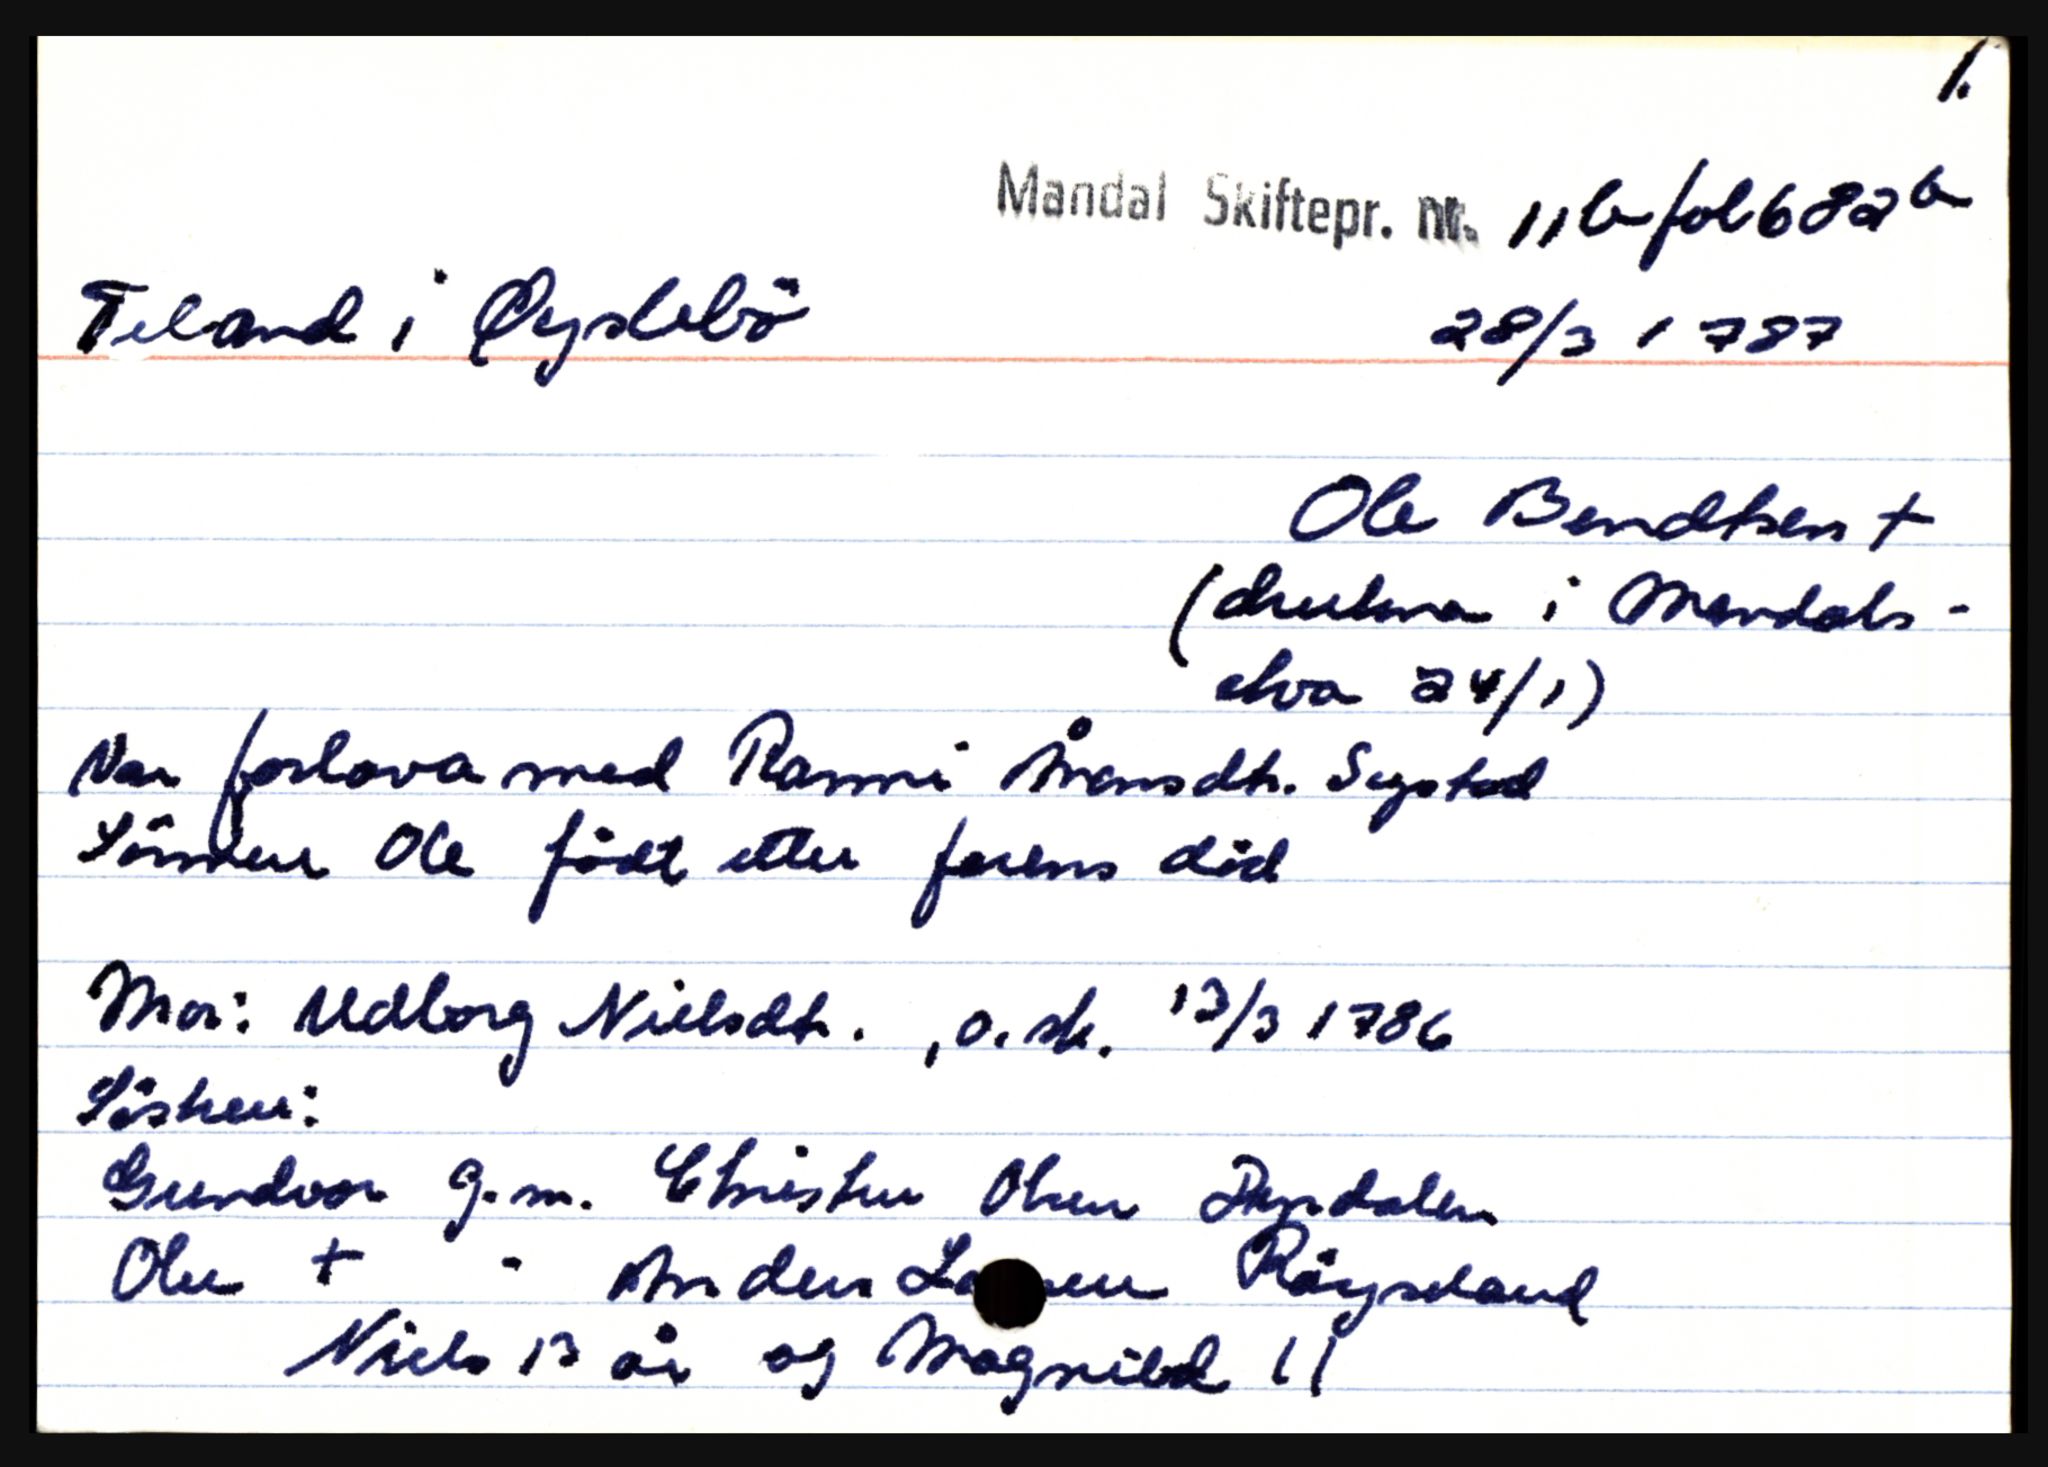 1.
Mandal Skiftepr. nr. 11b fol 682b
Teland i Øyslebö
28/3 1787
Ole Bendtsen +
(drukna i Mandals-
elva 24/1)
Var forlova med Ranni Åmensdtr. Sygstad
Sönnen Ole född etter farens död
Mor: Udborg Nielsdtr. , o. sk. 13/3 1786
Sösken:
Gundvor g.m. Christen Olsen Dyrdalen
Olee + - Anders Larsen Röyseland
Niels 13 år og Magnild 11